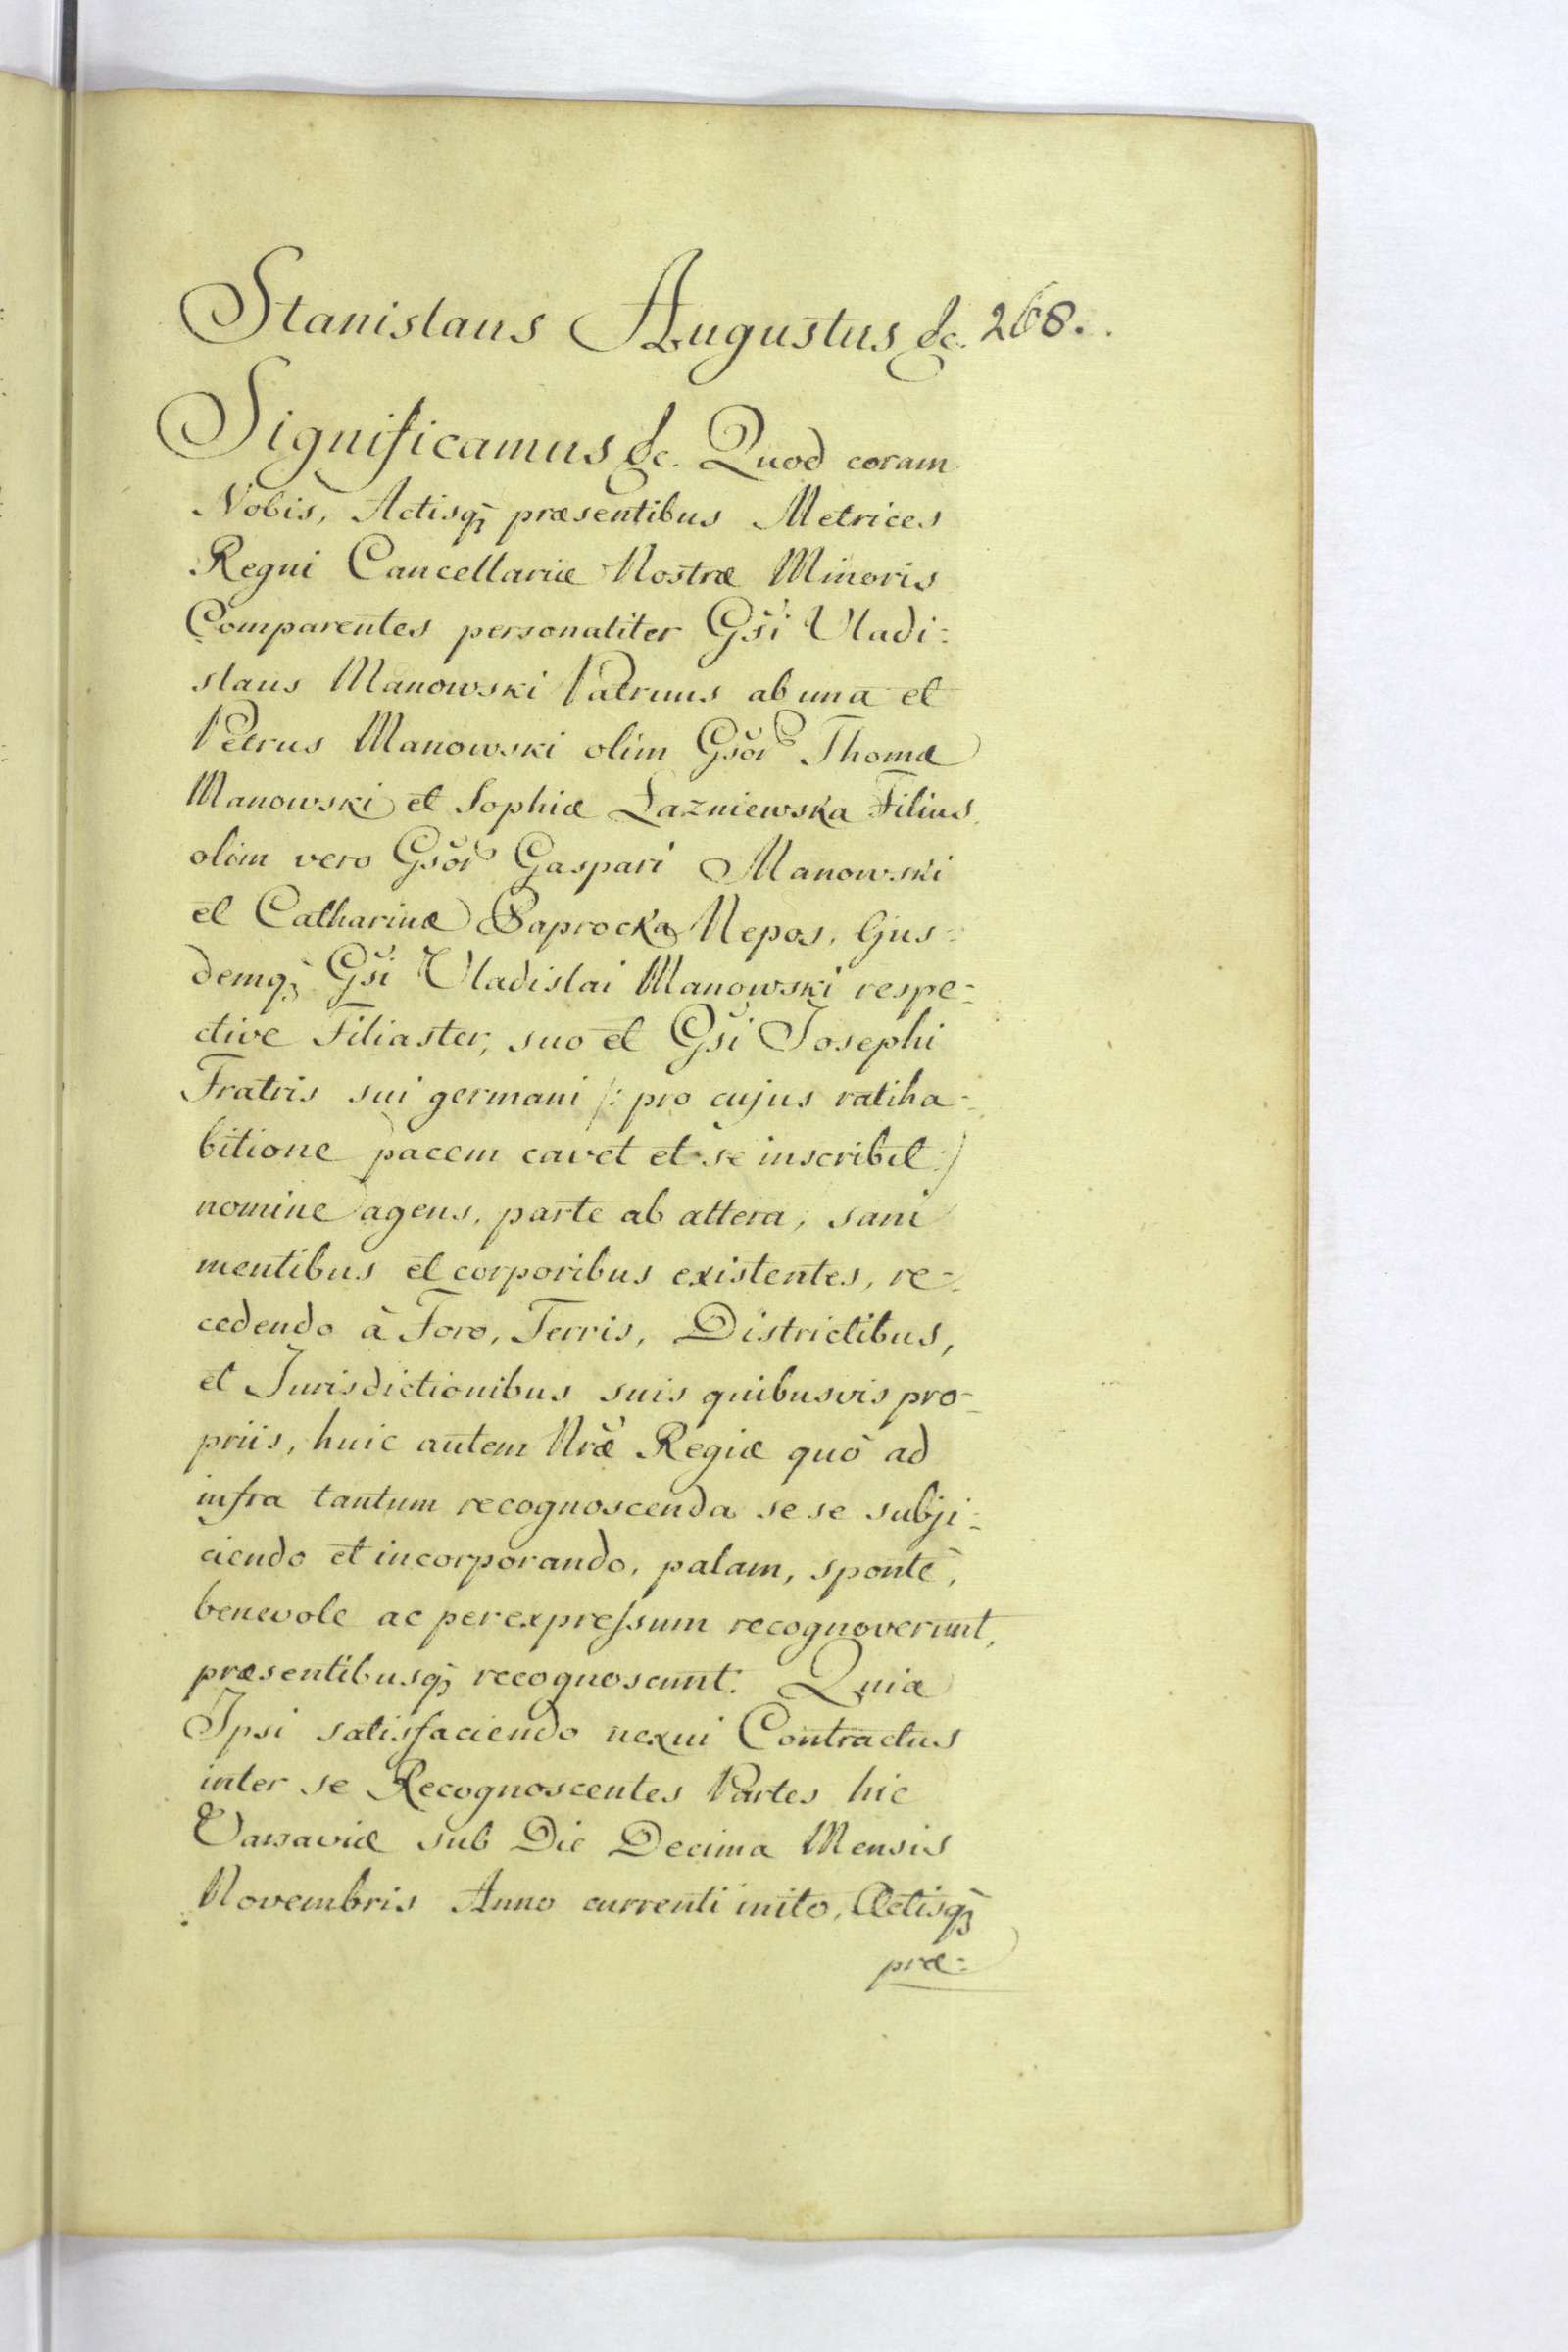 Stanislaus Augustus &c. 268.
Significamus &c. Quod coram
Nobis, Actisq̃ præsentibus Metrices
Regni Cancellariæ Nostræ Minoris
Comparentes personaliter Gsi Uladi=
slaus Manowski Patruus ab una et
Petrus Manowski olim Gsor Thomæ
Manowski et Sophiæ Lazniewska Filius,
olim vero Gsor Gaspari Manowski
et Catharinæ Paprocka Nepos, Ejus=
demq̃ Gsi Uladislai Manowski respe=
ctive Filiaster, suo et Gsi Josephi
Fratris sui germani /: pro cujus ratiha=
bitione pacem cavet et se inscribit :/
nomine agens, parte ab altera, sani
mentibus et corporibus existentes, re=
cedendo à Foro, Terris, Districtibus,
et Jurisdictionibus suis quibusvis pro=
priis, huic autem Nræ Regiæ quò ad
infra tantum recognoscenda se se subji=
ciendo et incorporando, palam, spontè,
benevole ac per expressum recognoverunt,
præsentibusq̃ recognoscunt. Quia
Ipsi satisfaciendo nexui Contractus
inter se Recognoscentes Partes hic
Varsaviæ sub Die Decima Mensis
Novembris Anno currenti inito, Actisq̃
præ=